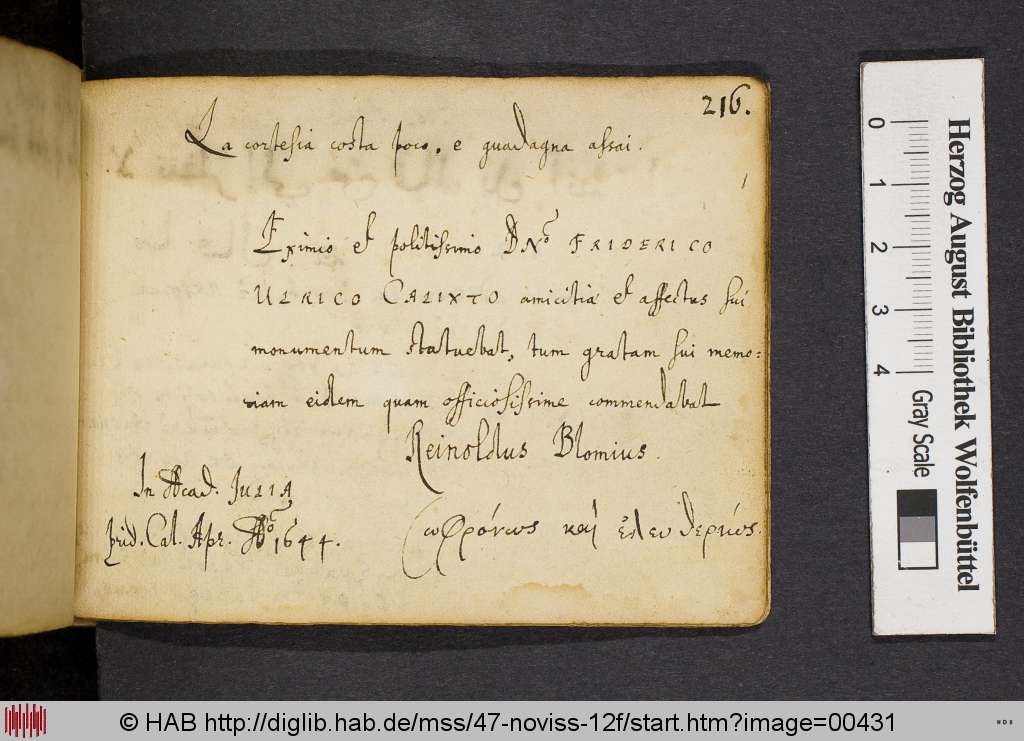 216.
La cortesia costa poco, e guadagna assai.
Eximio et politissimo DNo FRIDERICO
ULRICO CALIXTO amicitiæ et affectus sui
monumentum statuebat, tum gratam sui memo:
riam eidem quam officiosissime commendabat
Reinoldus Blomius.
In Acad. JULIA
prid. Cal. Apr. Ao. 1644.
Σωφρόνως καὶ ἐλευθερίως.
0 1 2 3 4
Gray Scale
Herzog August Bibliothek Wolfenbüttel
© HAB http://diglib.hab.de/mss/47-noviss-12f/start.htm?image=00431
WDB